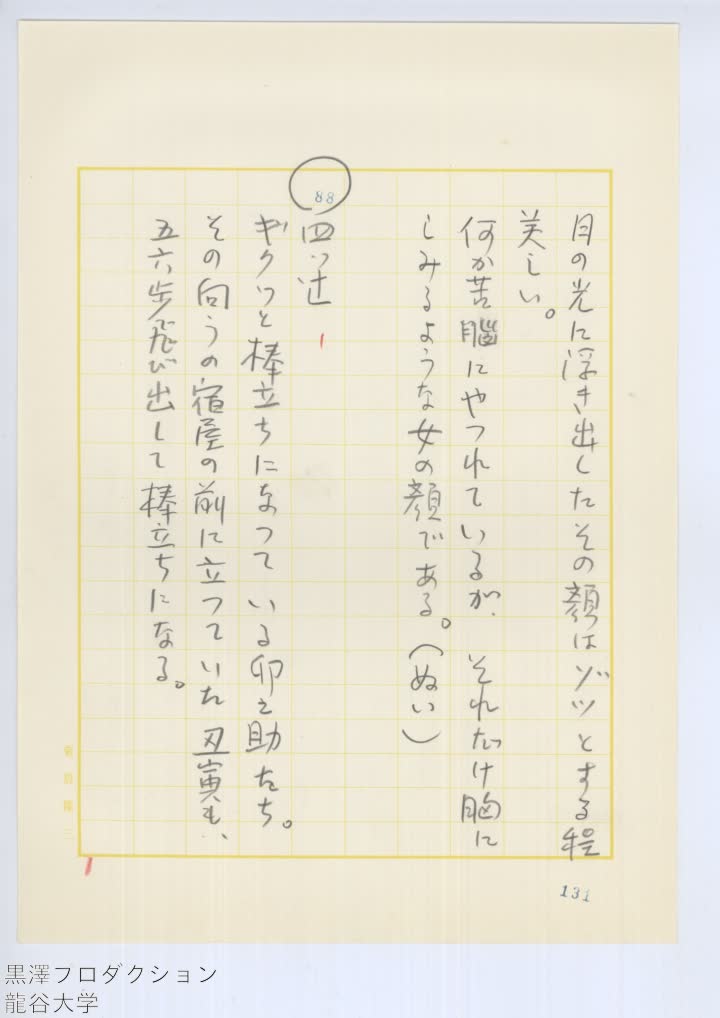 月の光に浮き出したその顔はゾッとする程
美しい。
何か苦脳にやつれているが、それだけ胸に
しみるような女の顔である。(ぬい)
88
四ツ辻
ギクッと棒立ちになつている卯之助たち。
その向うの宿屋の前に立つていた丑寅も、
五六歩飛び出して棒立ちになる。
131
黒澤プロダクション
龍谷大学